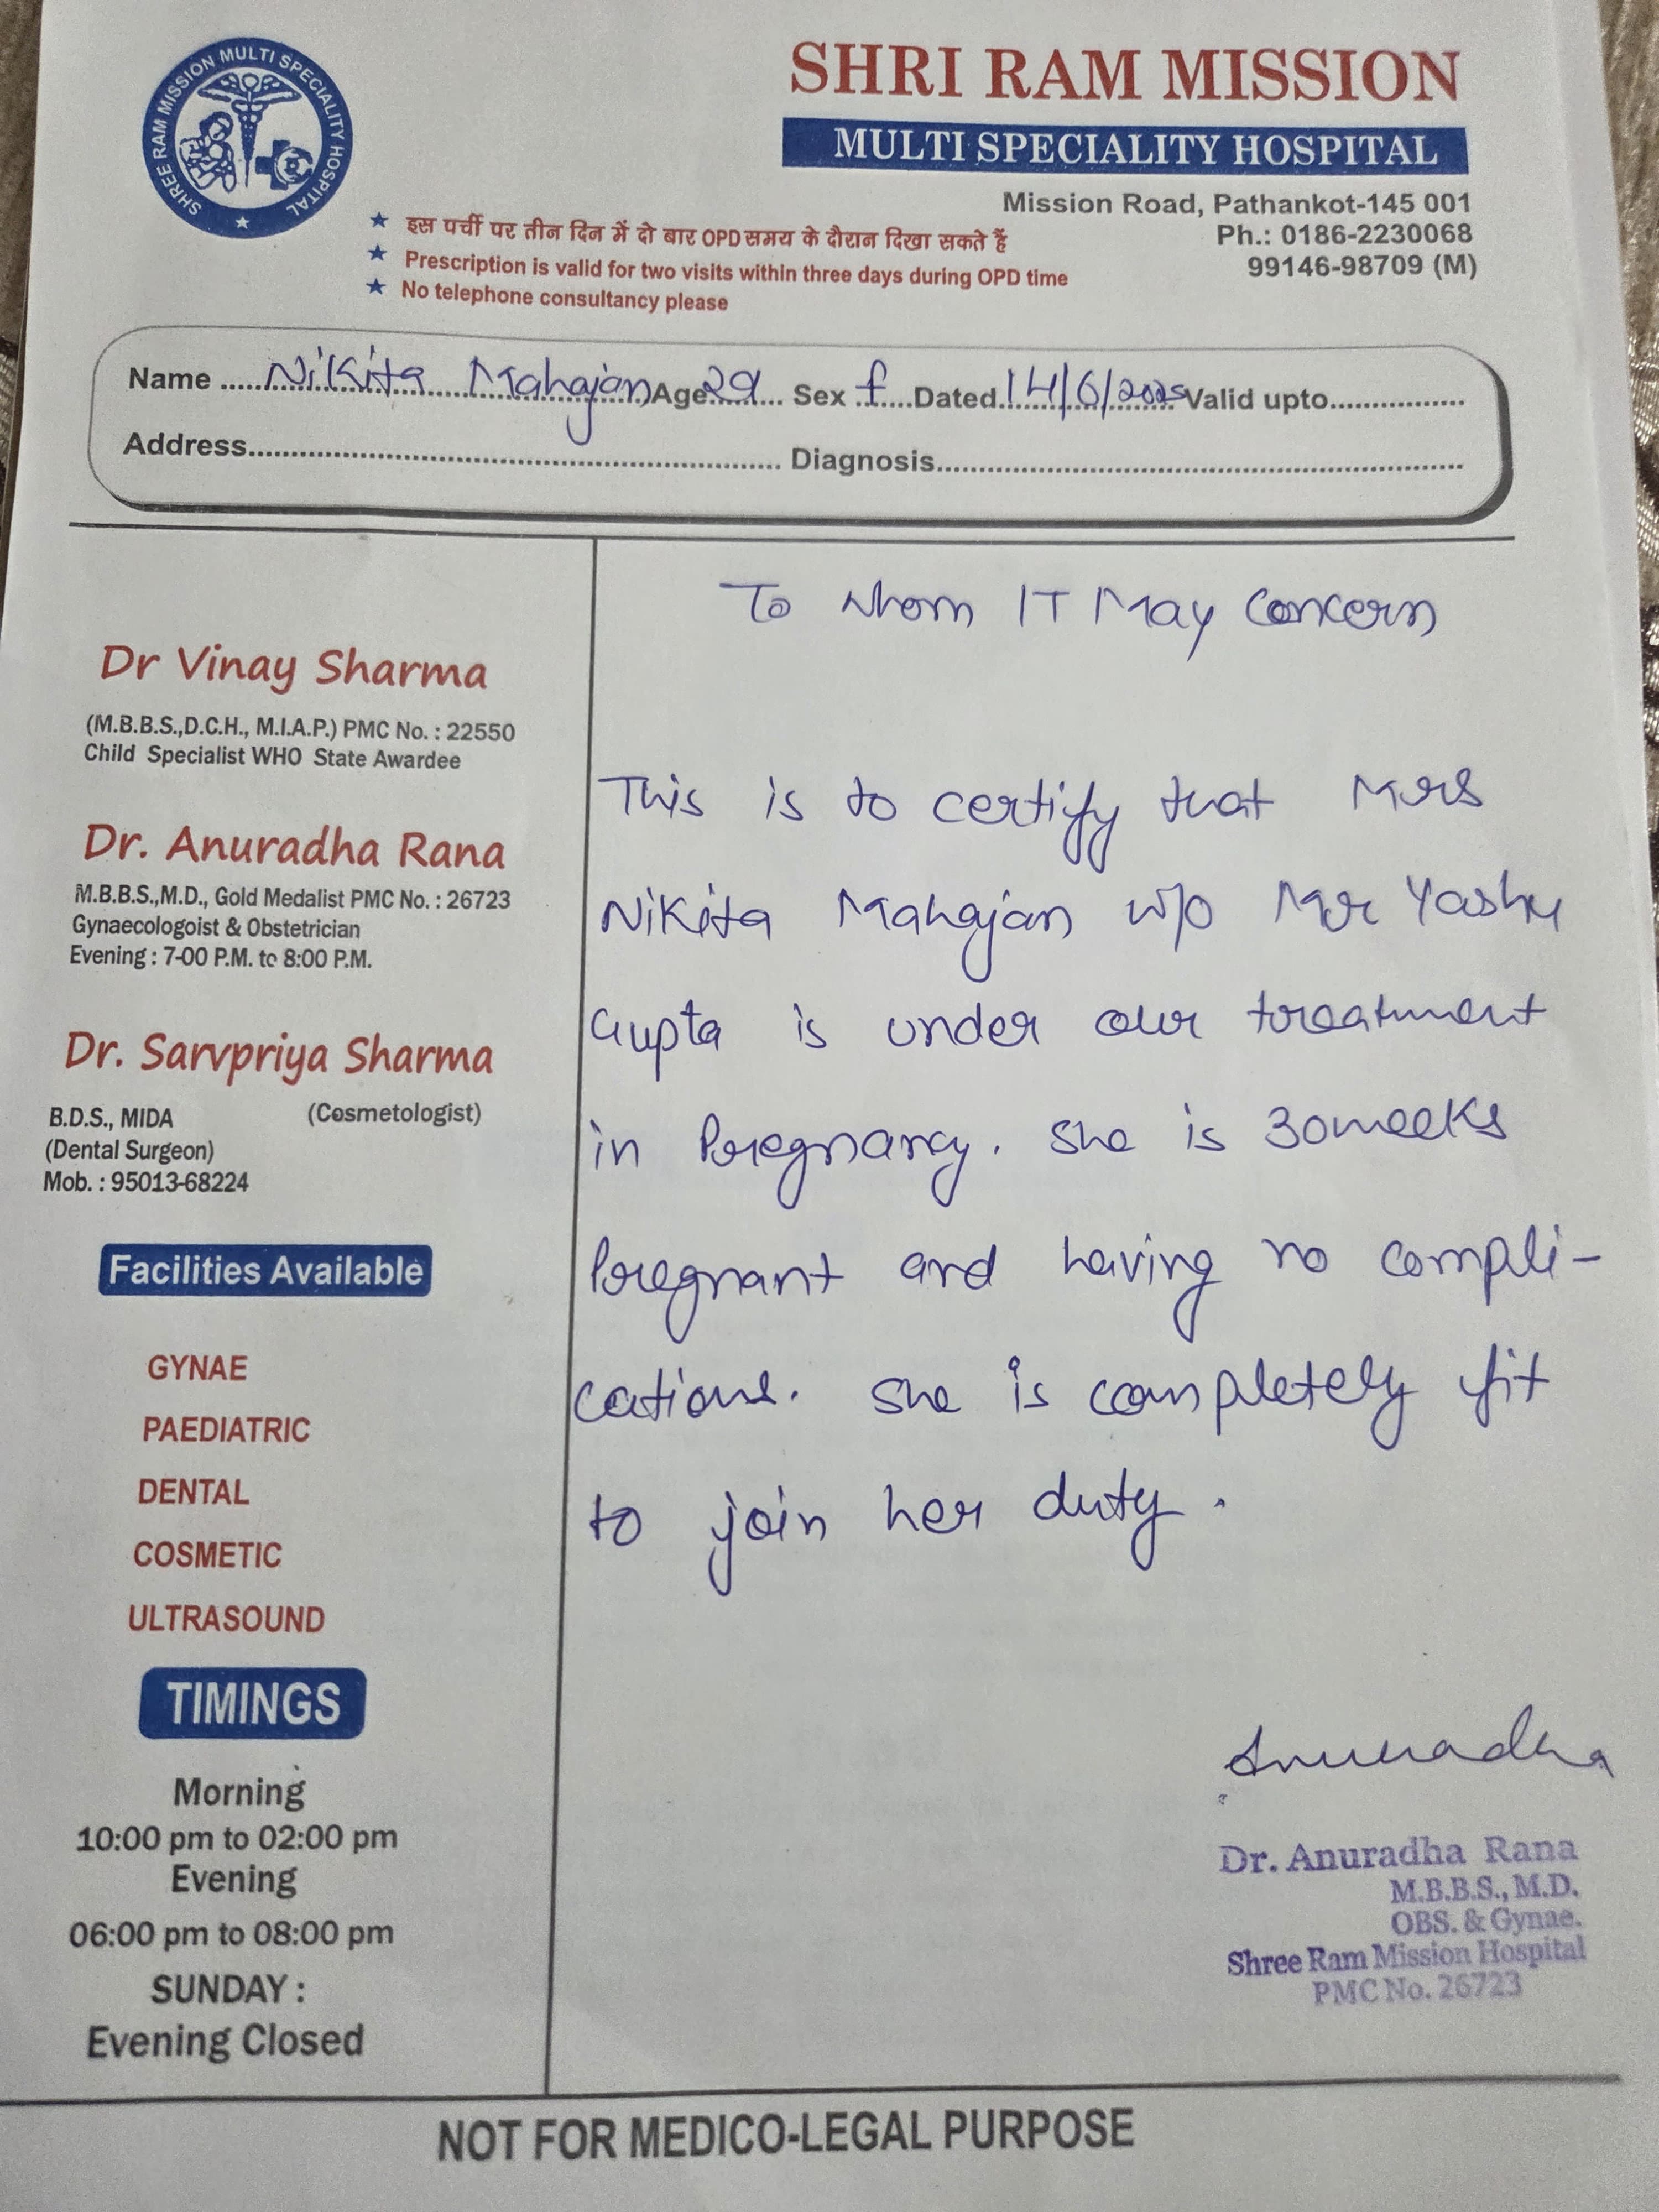 SHREE RAM MISSION MULTI SPECIALITY HOSPITAL
SHRI RAM MISSION
MULTI SPECIALITY HOSPITAL
Mission Road, Pathankot-145 001
Ph.: 0186-2230068
99146-98709 (M)
★ इस पर्ची पर तीन दिन में दो बार OPD समय के दौरान दिखा सकते हैं
★ Prescription is valid for two visits within three days during OPD time
★ No telephone consultancy please
Name ..... Nikita Mahajan Age 29 Sex f Dated 14/6/2025 Valid upto................
Address.................................................. Diagnosis..................................................
Dr Vinay Sharma
(M.B.B.S.,D.C.H., M.I.A.P.) PMC No. : 22550
Child Specialist WHO State Awardee
Dr. Anuradha Rana
M.B.B.S.,M.D., Gold Medalist PMC No. : 26723
Gynaecologoist & Obstetrician
Evening : 7-00 P.M. to 8:00 P.M.
Dr. Sarvpriya Sharma
B.D.S., MIDA (Cosmetologist)
(Dental Surgeon)
Mob. : 95013-68224
Facilities Available
GYNAE
PAEDIATRIC
DENTAL
COSMETIC
ULTRASOUND
TIMINGS
Morning
10:00 pm to 02:00 pm
Evening
06:00 pm to 08:00 pm
SUNDAY :
Evening Closed
To Whom IT May Concern
This is to certify that Mrs
Nikita Mahajan w/o Mr Yashu
Gupta is under our treatment
in Pregnancy. She is 30weeks
Pregnant and having no compli-
cations. She is completely fit
to join her duty.
Anuradha
Dr. Anuradha Rana
M.B.B.S., M.D.
OBS. & Gynae.
Shree Ram Mission Hospital
PMC No. 26723
NOT FOR MEDICO-LEGAL PURPOSE